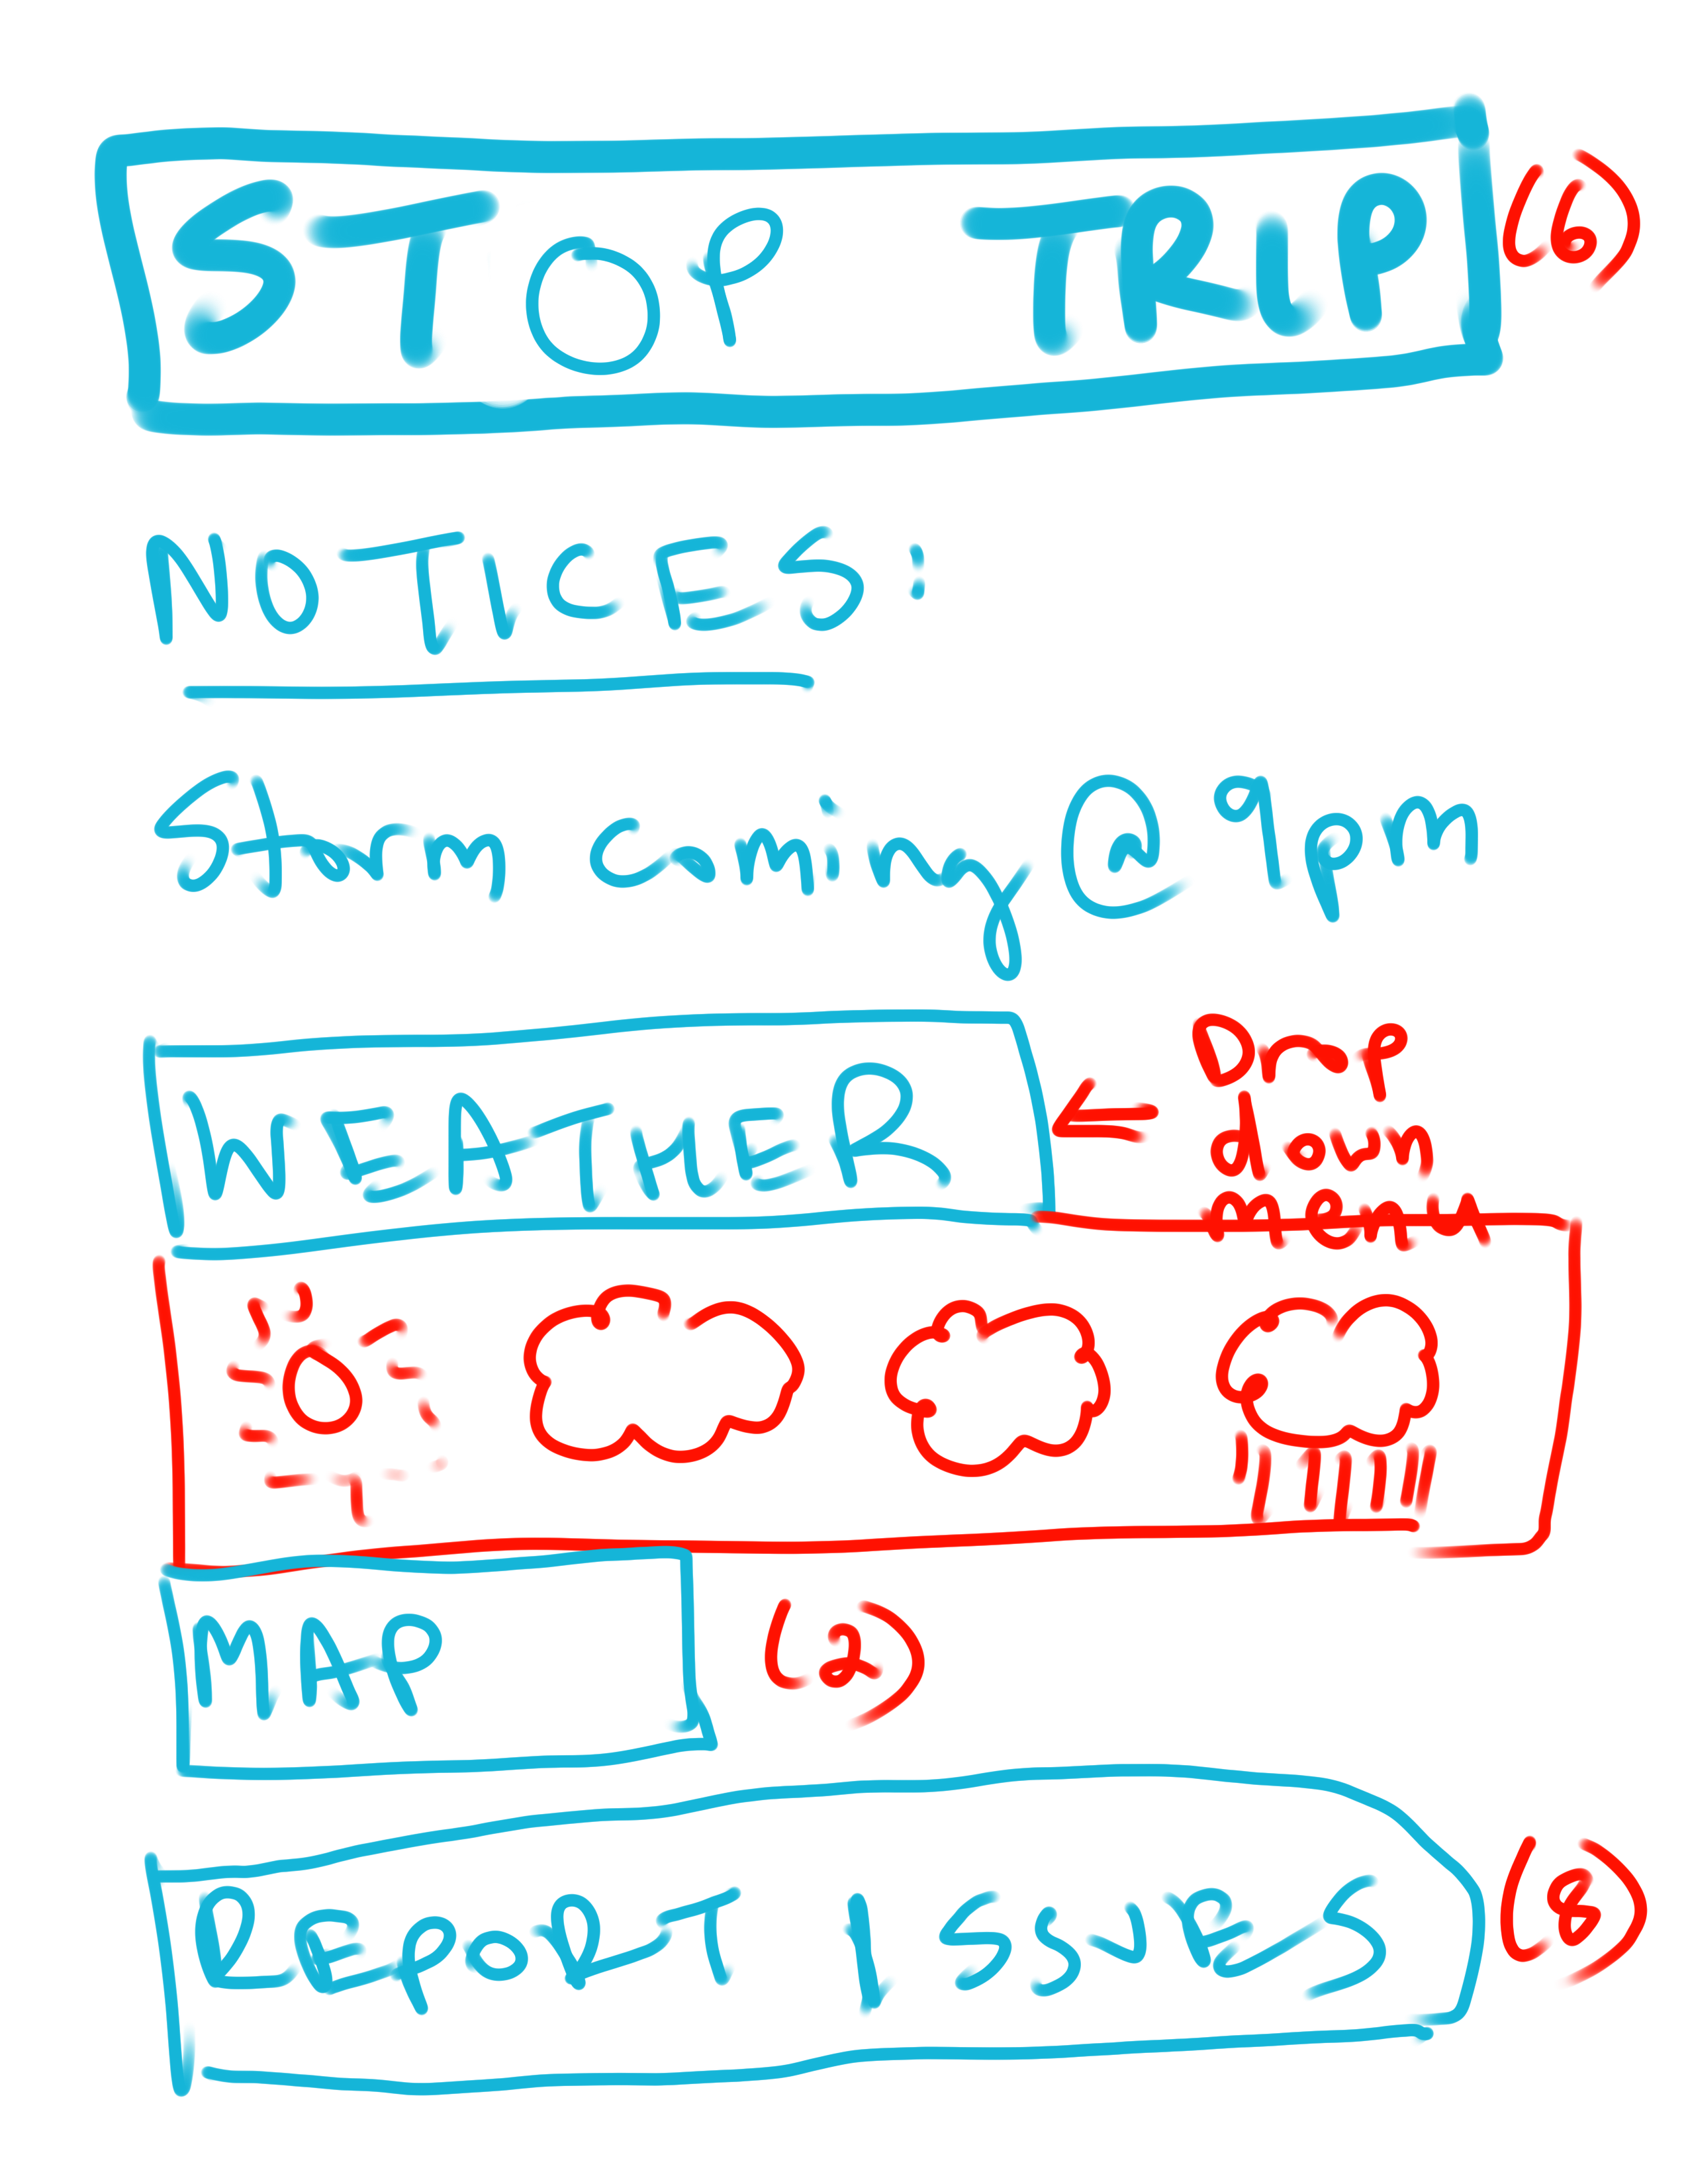 STOP TRIP (6)
NOTICES:
Storm coming @ 9pm
WEATHER
Drop
down
menu
MAP (2)
REPORT ISSUES (8)